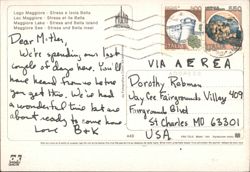 Lago Maggiore - Stresa e Isola Bella
Lac Majeur - Stresa et Ile Bella
Maggiore Lake - Stresa and Bella Island
Maggiore See - Stresa und Bella Insel
Dear Mother,
We're spending our last
couple of days here. You'll
have heard from us before
you get this. We've had
a wonderful time but are
about ready to come home
Love B+K
ITALIA
ITALIA
VIA AEREA
Dorothy Robman
Jay Cee Fairgrounds Village 409
Fairgrounds Blvd
St Charles MO 63301
USA